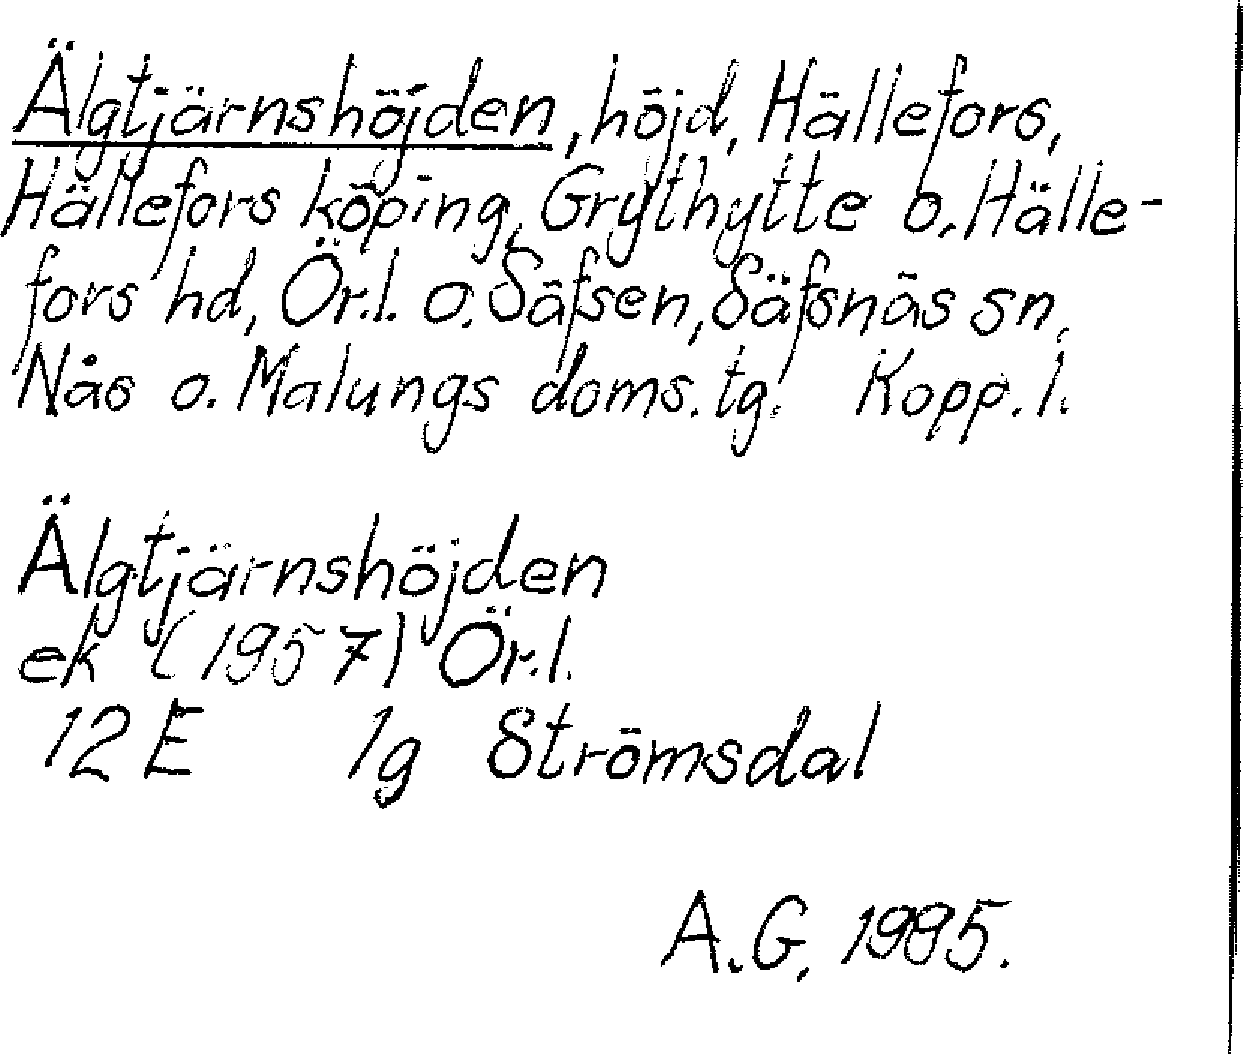 Älgtjärnshöjden, höjd, Hällefors,
Hällefors köping, Grythytte o. Hälle-
fors hd, Ör.l. o. Säfsen, Säfsnäs sn,
Nås o. Malungs doms.tg. Kopp.l.
Älgtjärnshöjden
ek (1957) Ör.l.
12E 1g Strömsdal
A.G, 1985.